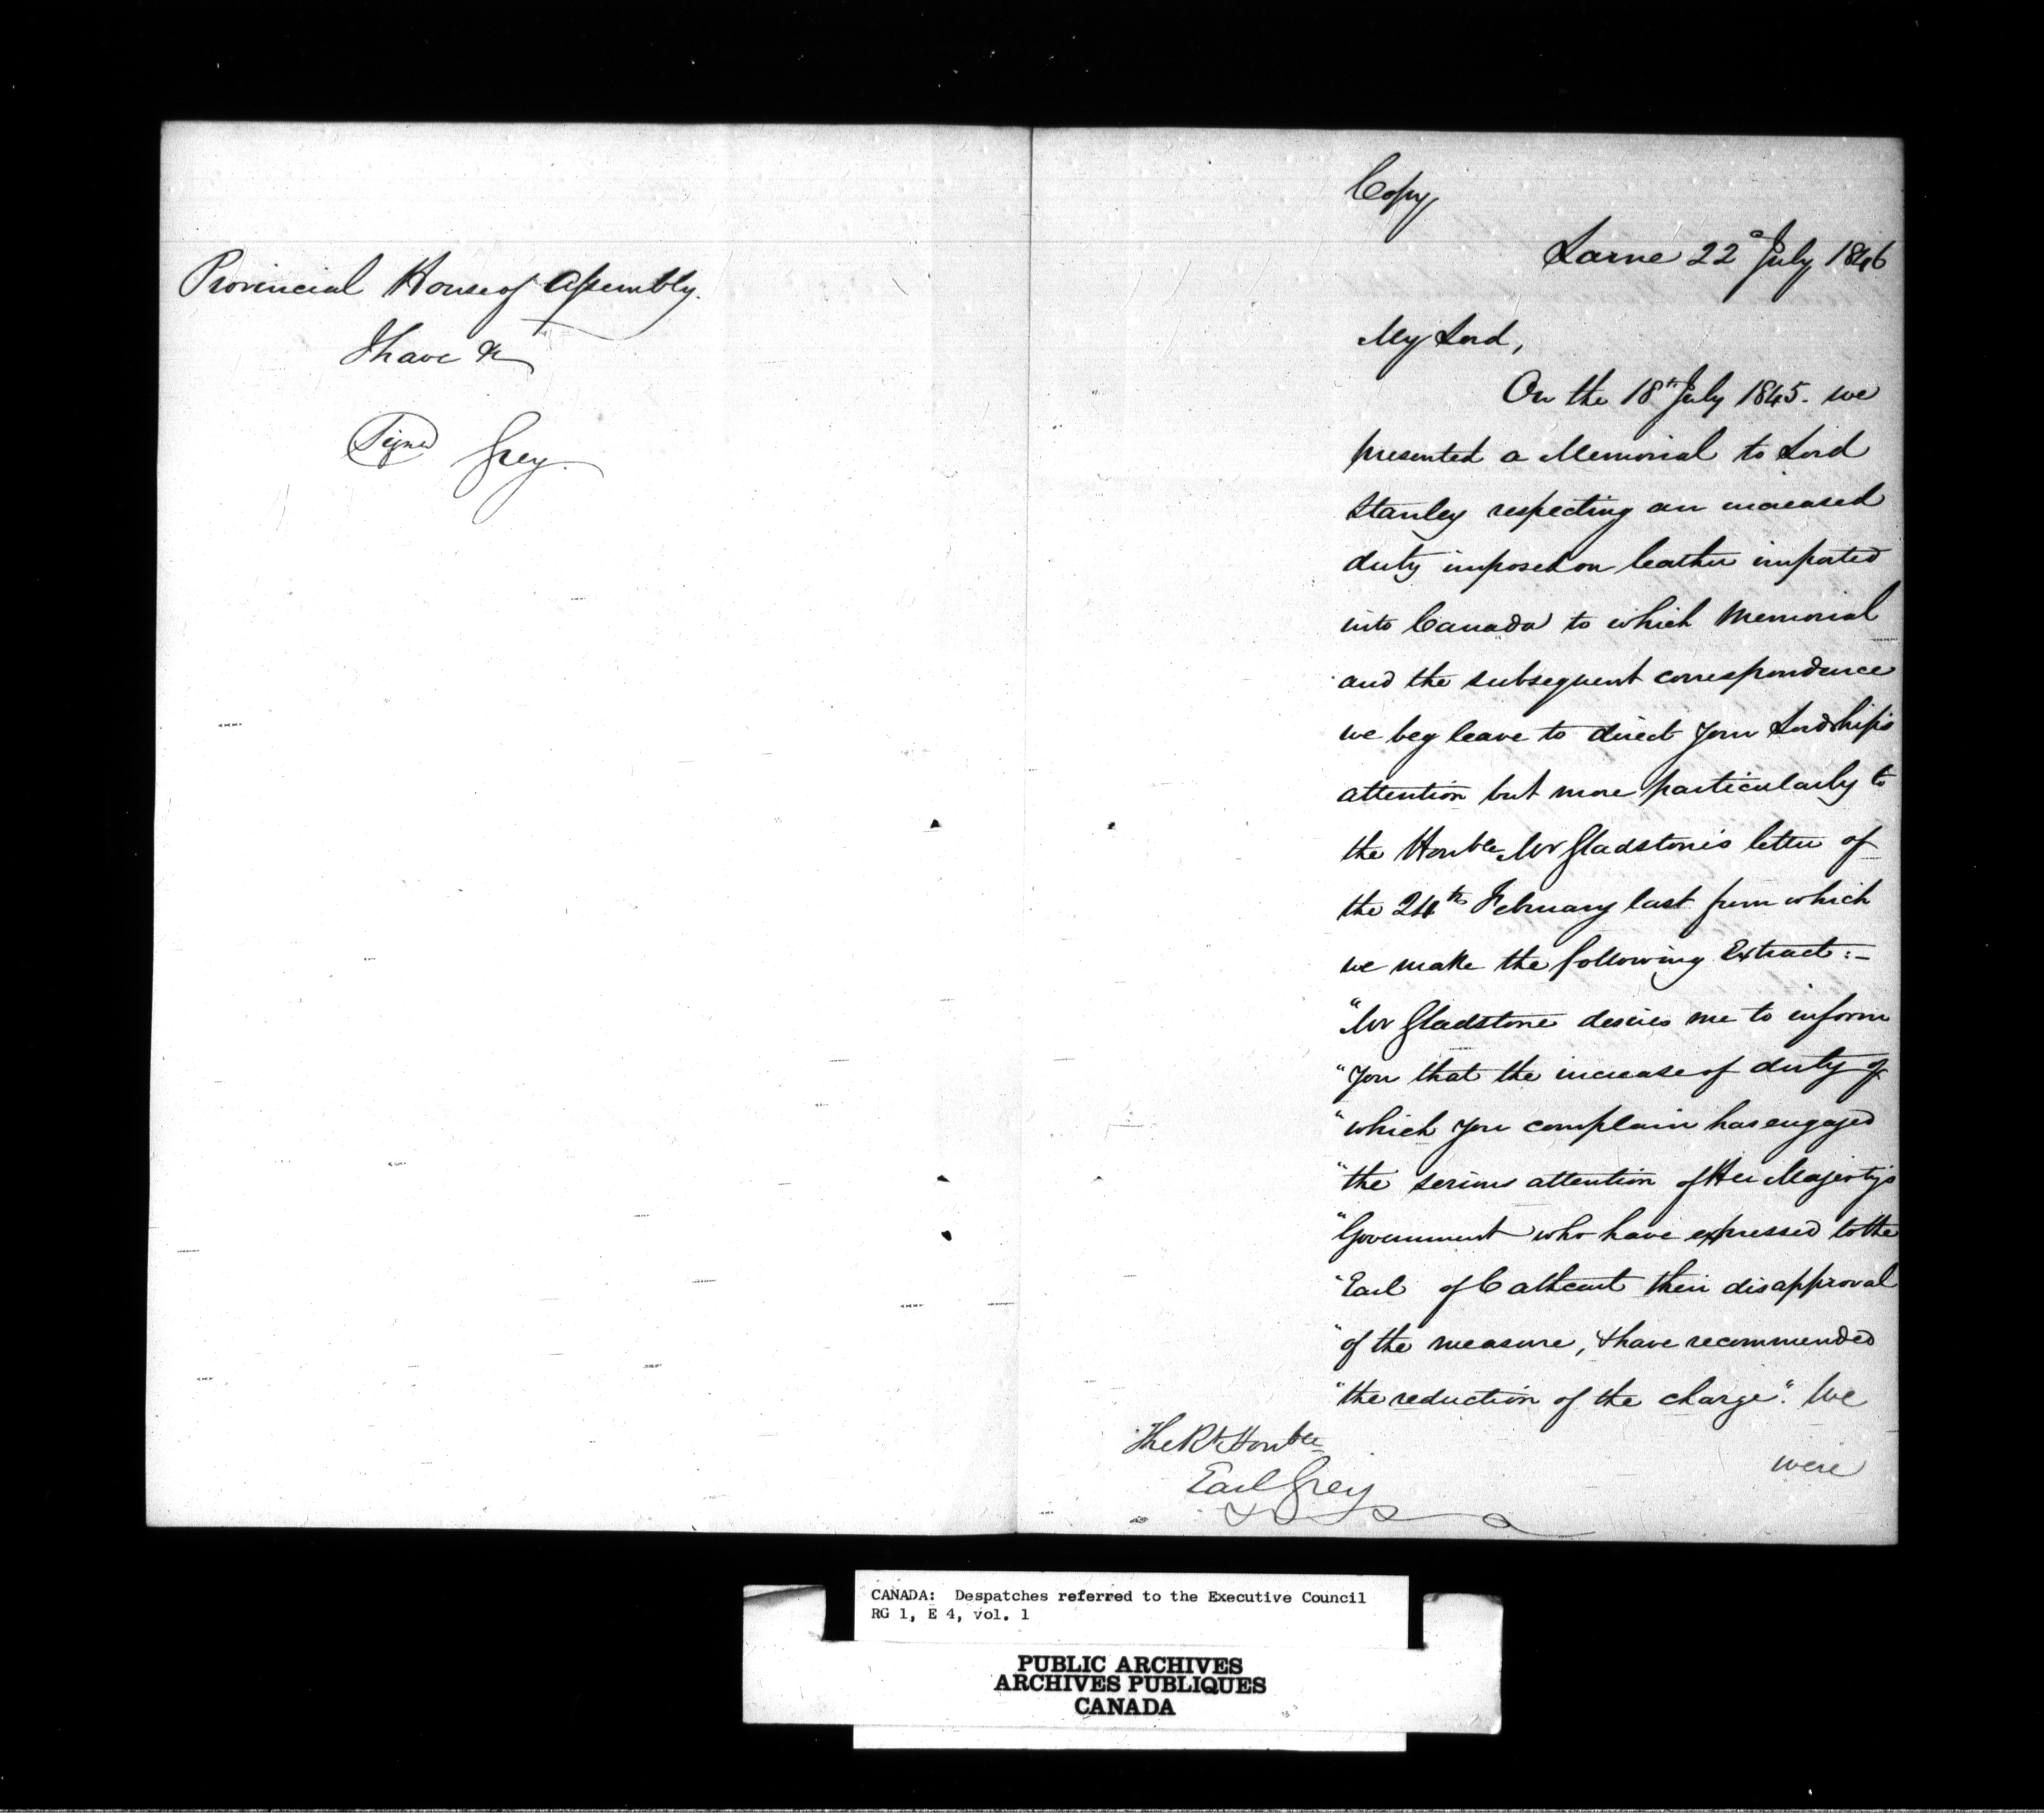 Provincial House of Assembly.
I have &c
Signed Grey.
Copy
Larne 22d July 1846
My Lord,
On the 18th July 1845. we
presented a Memorial to Lord
Stanley respecting an increased
duty imposed on leather imported
into Canada to which Memorial
and the subsequent correspondence
we beg leave to direct Your Lordship's
attention but more particularly to
the Honble Mr Gladstone's letter of
the 24th February last from which
we make the following Extract:-
"Mr Gladstone desires me to inform
"You that the increase of duty of
"which You complain has engaged
"the serious attention of Her Majesty's
"Government who have expressed to the
"Earl of Cathcart their disapproval
"of the measure, & have recommended
"the reduction of the charge". We
were
The Rt Honble
Earl Grey
CANADA: Despatches referred to the Executive Council
RG 1, E 4, vol. 1
PUBLIC ARCHIVES
ARCHIVES PUBLIQUES
CANADA